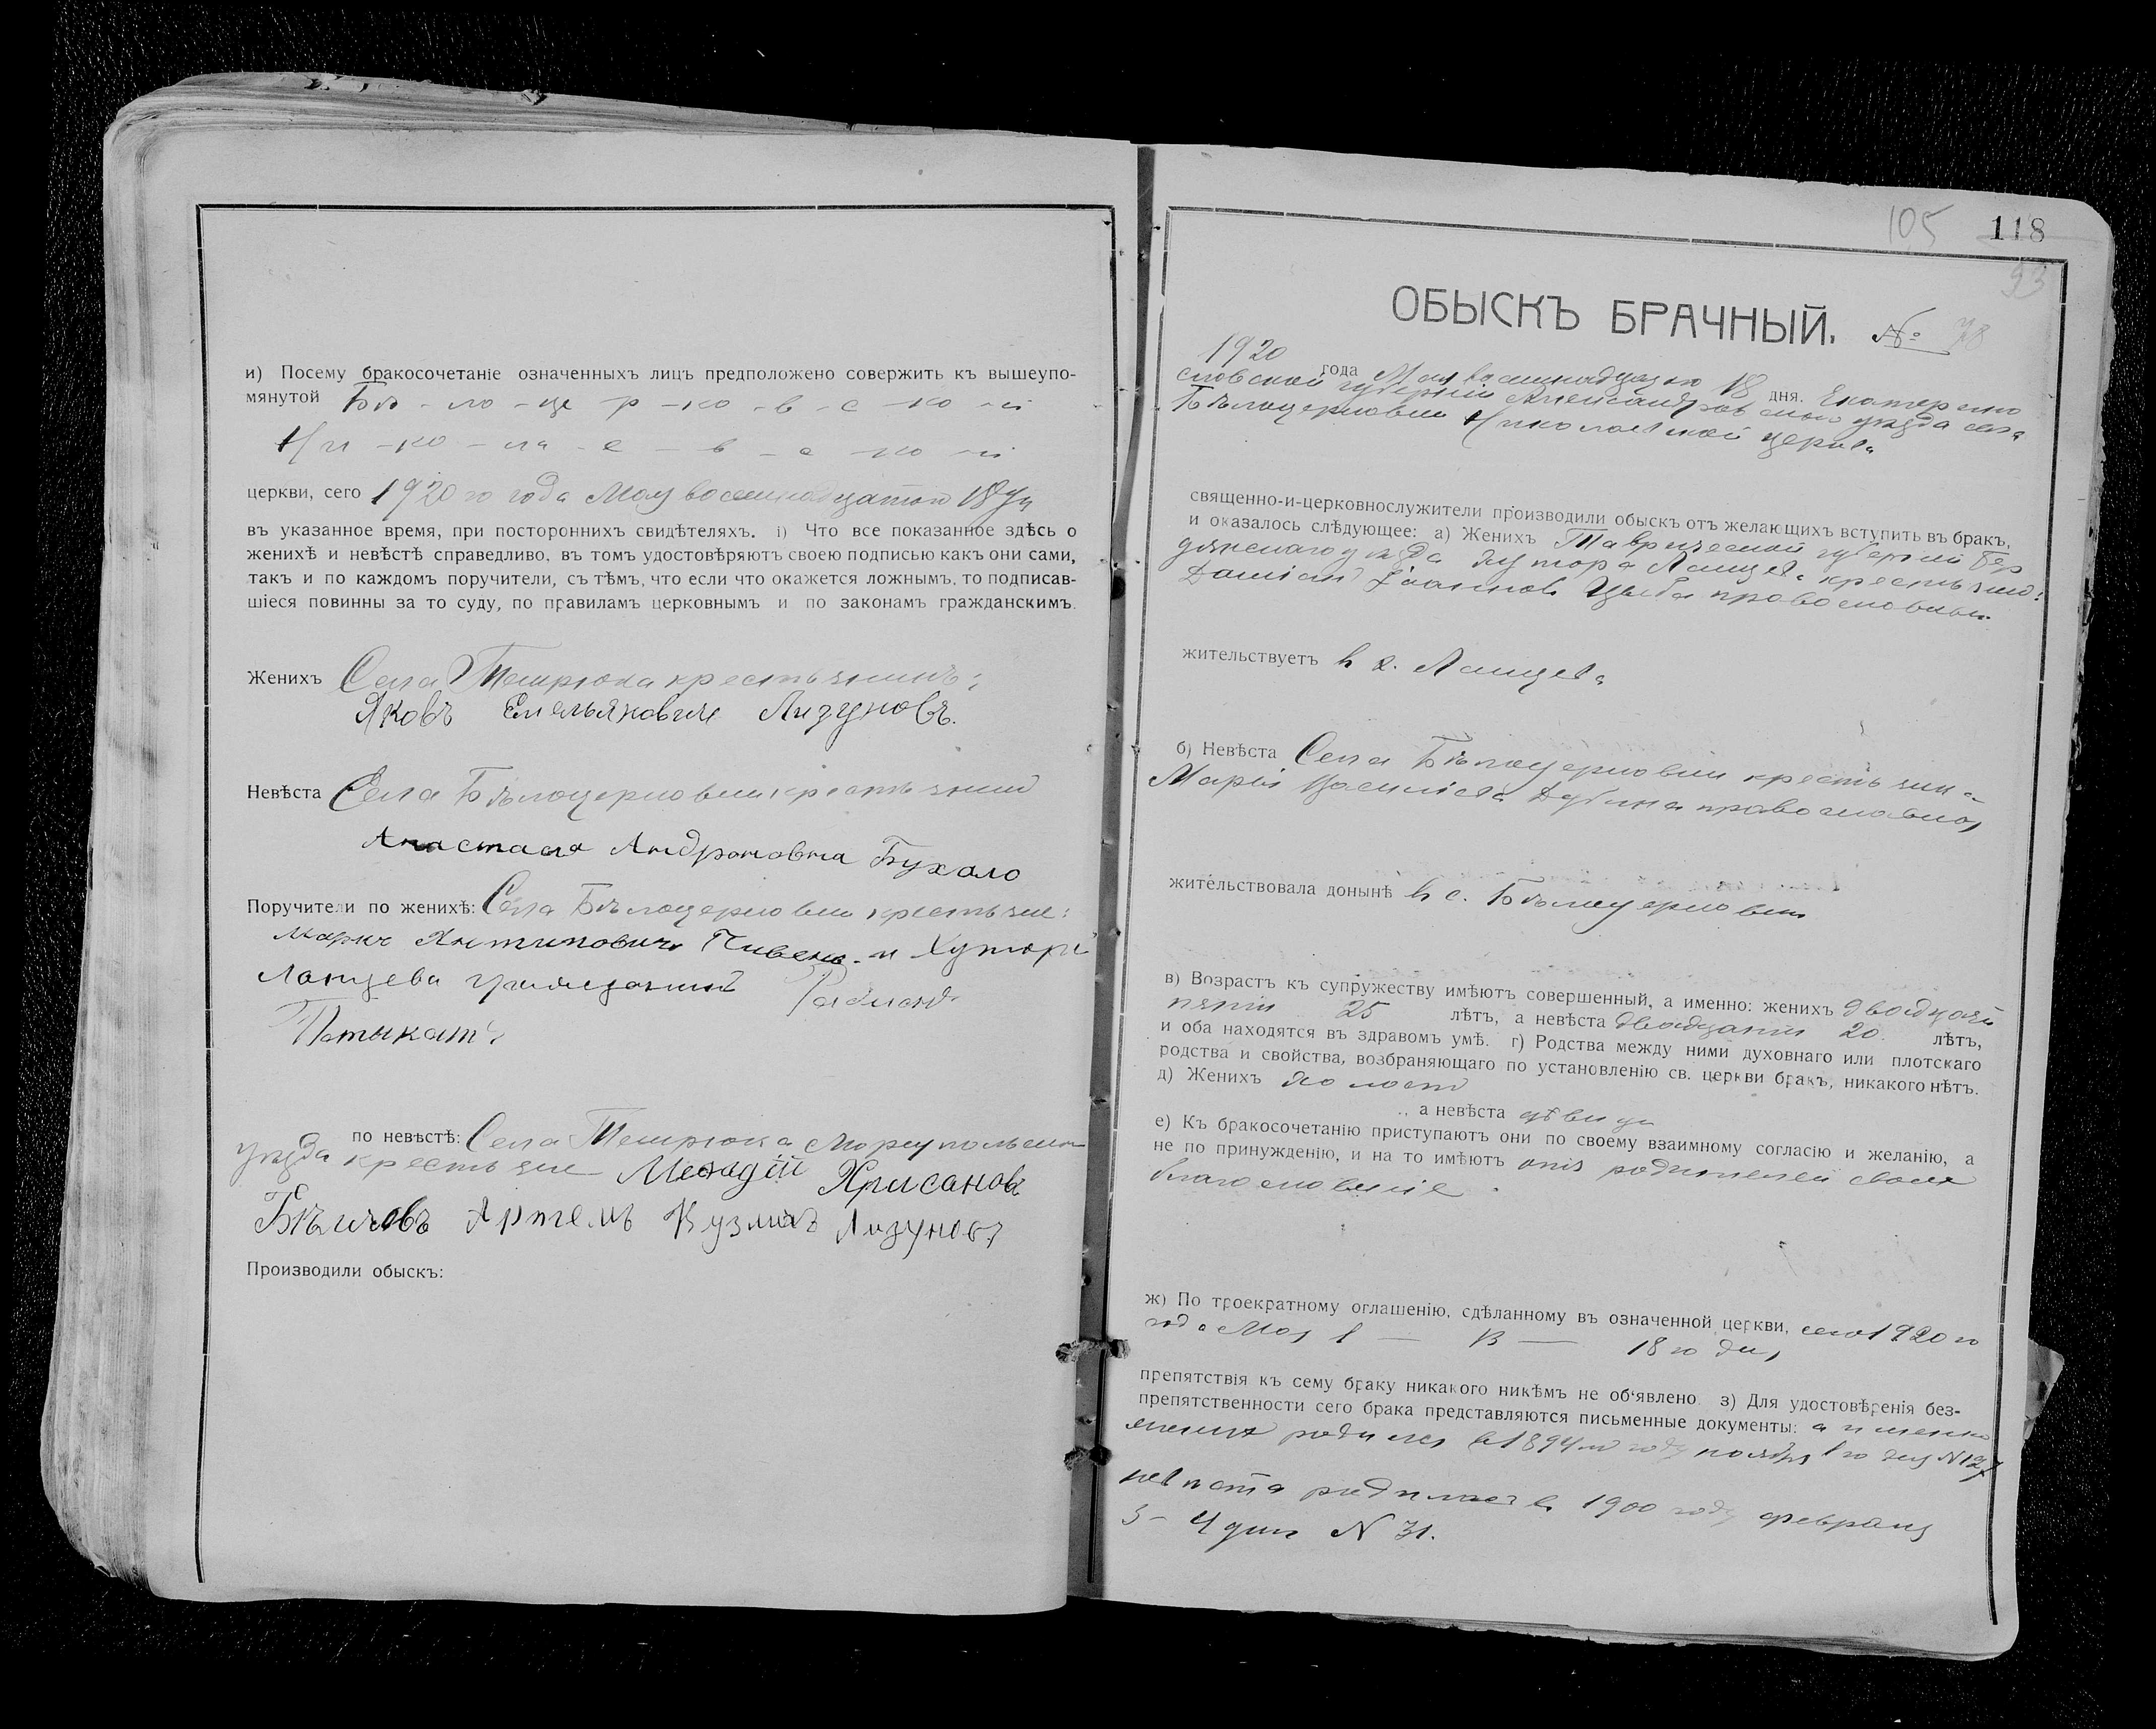 и) Посему бракосочетаніе означенныхъ лицъ предположено совержить къ вышеупо-
мянутой Бѣ - ло - це - р - ко - в - с - ко - й
Ни - ко - ла - е - в - с - ко - й
церкви, сего 1920 го года Мая восемнадцатого 18
въ указанное время, при постороннихъ свидѣтеляхъ. і) Что все показанное здѣсь о
женихѣ и невѣстѣ справедливо, въ томъ удостовѣряютъ своею подписью какъ они сами,
такъ и по каждомъ поручители, съ тѣмъ, что если что окажется ложнымъ, то подписав-
шіеся повинны за то суду, по правиламъ церковнымъ и по законамъ гражданскимъ.
Женихъ Села Темрюка крестьянинъ:
Яковъ Емельяновичъ Лизуновъ.
Невѣста Села Бѣлоцерковки
Анастасія Андроновна Бухало
Поручители по женихѣ: Села Бѣлоцерковки крестьяне:
Маркъ Антиповичъ Пивень и Хутора
Ланцева
по невѣстѣ: Села Темрюка
уѣзда крестьяне Хрисановъ
Артемъ Кузмичъ Лизуновъ
Производили обыскъ:
105 118
93
ОБЫСКЪ БРАЧНЫЙ. № 78
1920 года Мая восемнадцатаго 18 дня. Екатерино
славской губерніи Александровскаго уѣзда села
Бѣлоцерковки Николаевской церкви
священно-и-церковнослужители производили обыскъ отъ желающихъ вступить въ бракъ,
и оказалось слѣдующее: а) Женихъ Таврической губерніи Бер
дянскаго уѣзда хутора Ланцева крестьянинъ:
Даміанъ Іоанновъ Цыба православный
жительствуетъ в х. Ланцева
б) Невѣста Села Бѣлоцерковки крестьянка
Марія Василіева Дубина православная
жительствовала донынѣ в с. Бѣлоцерковки
в) Возрастъ къ супружеству имѣютъ совершенный, а именно: женихъ двадцать
пяти 25 лѣтъ, а невѣста двадцати 20. лѣтъ,
и оба находятся въ здравомъ умѣ. г) Родства между ними духовнаго или плотскаго
родства и свойства, возбраняющаго по установленію св. церкви бракъ, никакого нѣтъ.
д) Женихъ холостъ
а невѣста дѣвица
е) Къ бракосочетанію приступаютъ они по своему взаимному согласію и желанію, а
не по принужденію, и на то имѣютъ отъ родителей своихъ
благословеніе.
ж) По троекратному оглашенію, сдѣланному въ означенной церкви, сего 1920 го
года Мая 1 — 13 — 18 го дня
препятствія къ сему браку никакого никѣмъ не об‘явлено. з) Для удостовѣренія без-
препятственности сего брака представляются письменные документы: а именно
женихъ родился в 1894 м году ноября 1 го дня N 127
невѣста родилась в 1900 году февраля
3 - 4 дня N 31.